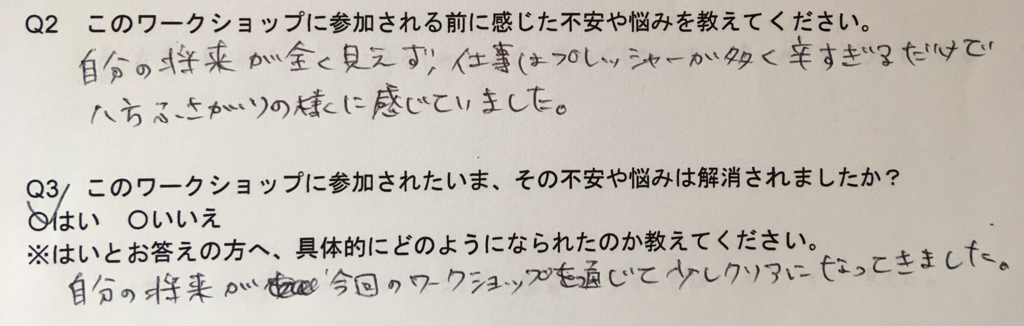 Q2 このワークショップに参加される前に感じた不安や悩みを教えてください。
自分の将来が全く見えず、仕事はプレッシャーが多く辛すぎるだけで
八方ふさがりの様に感じていました。
Q3 このワークショップに参加されたいま、その不安や悩みは解消されましたか？
〇はい 〇いいえ
※はいとお答えの方へ、具体的にどのようになられたのか教えてください。
自分の将来が 今回のワークショップを通じて少しクリアになってきました。